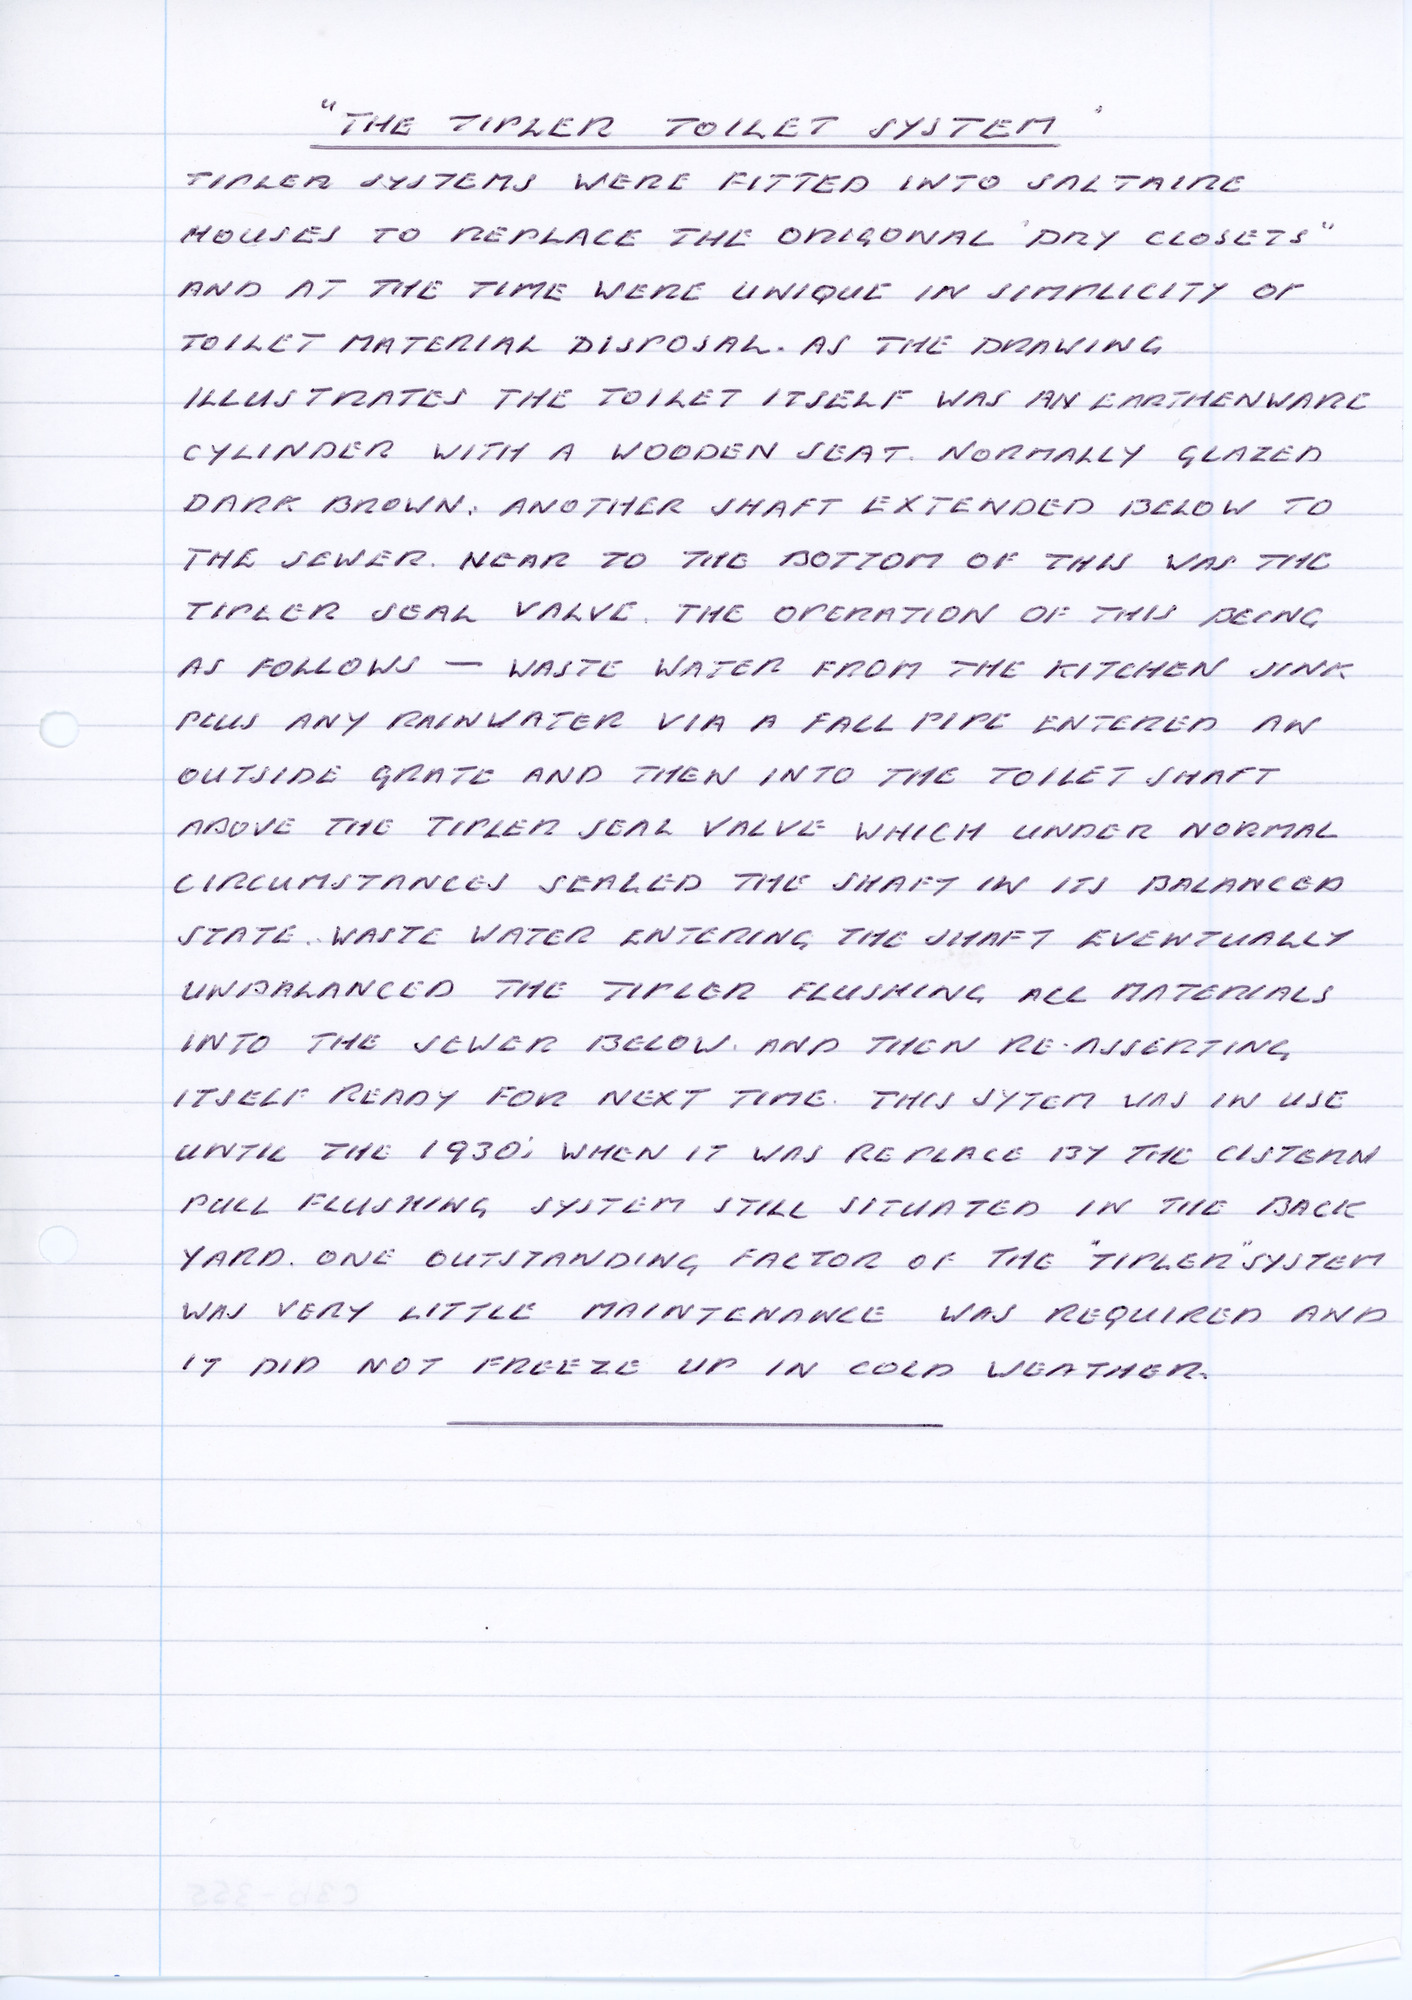 "THE TIPLER TOILET SYSTEM"
TIPLER SYSTEMS WERE FITTED INTO SALTAIRE
HOUSES TO REPLACE THE ORIGONAL "DRY CLOSETS"
AND AT THE TIME WERE UNIQUE IN SIMPLICITY OF
TOILET MATERIAL DISPOSAL. AS THE DRAWING
ILLUSTRATES THE TOILET ITSELF WAS AN EARTHENWARE
CYLINDER WITH A WOODEN SEAT. NORMALLY GLAZED
DARK BROWN. ANOTHER SHAFT EXTENDED BELOW TO
THE SEWER. NEAR TO THE BOTTOM OF THIS WAS THE
TIPLER SEAL VALVE. THE OPERATION OF THIS BEING
AS FOLLOWS — WASTE WATER FROM THE KITCHEN SINK
PLUS ANY RAINWATER VIA A FALL PIPE ENTERED AN
OUTSIDE GRATE AND THEN INTO THE TOILET SHAFT
ABOVE THE TIPLER SEAL VALVE WHICH UNDER NORMAL
CIRCUMSTANCES SEALED THE SHAFT IN ITS BALANCED
STATE. WASTE WATER ENTERING THE SHAFT EVENTUALLY
UNBALANCED THE TIPLER FLUSHING ALL MATERIALS
INTO THE SEWER BELOW. AND THEN RE-ASSERTING
ITSELF READY FOR NEXT TIME. THIS SYTEM WAS IN USE
UNTIL THE 1930's WHEN IT WAS REPLACE BY THE CISTERN
PULL FLUSHING SYSTEM STILL SITUATED IN THE BACK
YARD. ONE OUTSTANDING FACTOR OF THE "TIPLER" SYSTEM
WAS VERY LITTLE MAINTENANCE WAS REQUIRED AND
IT DID NOT FREEZE UP IN COLD WEATHER.